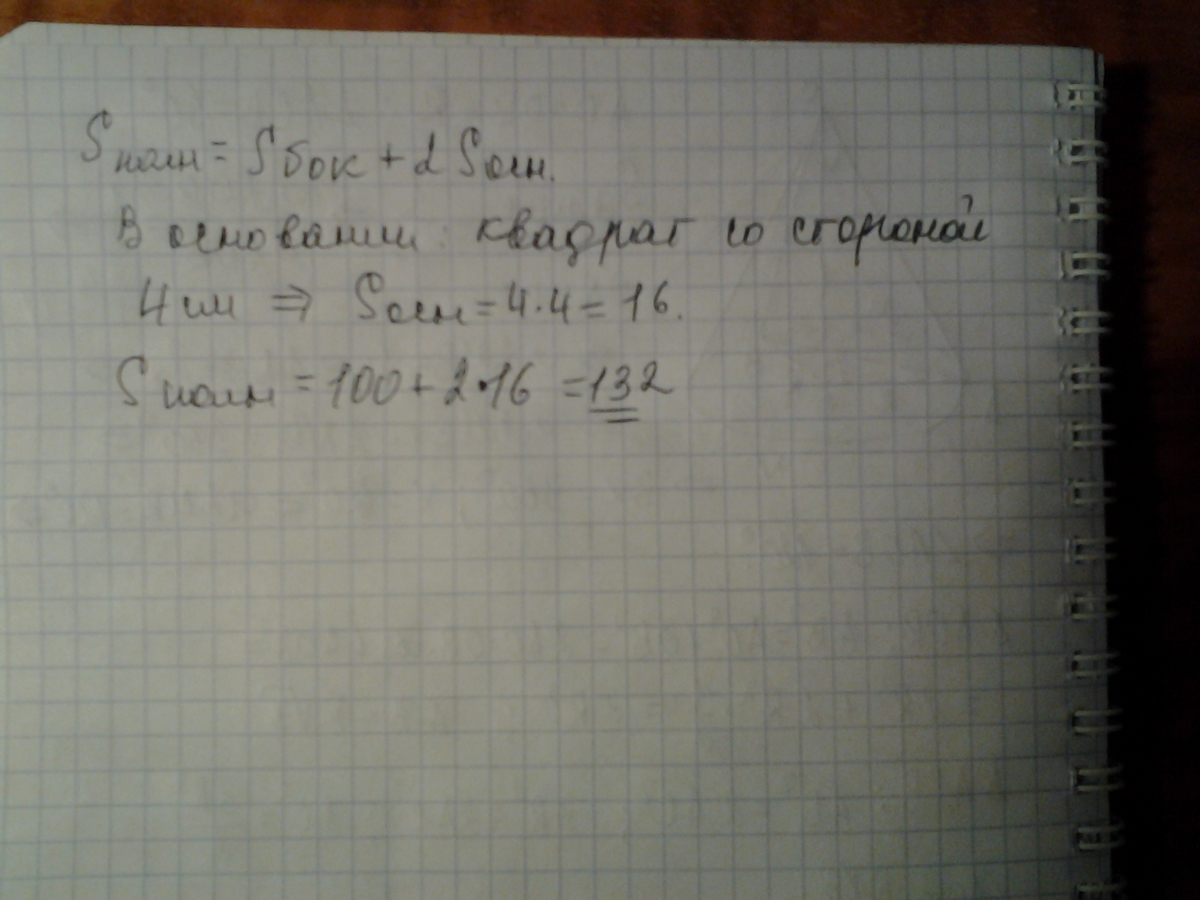 Sполн = Sбок + 2 Sосн.
В основании квадрат со стороной
4 см ⇒ Sосн = 4·4 = 16.
Sполн = 100 + 2·16 = 132